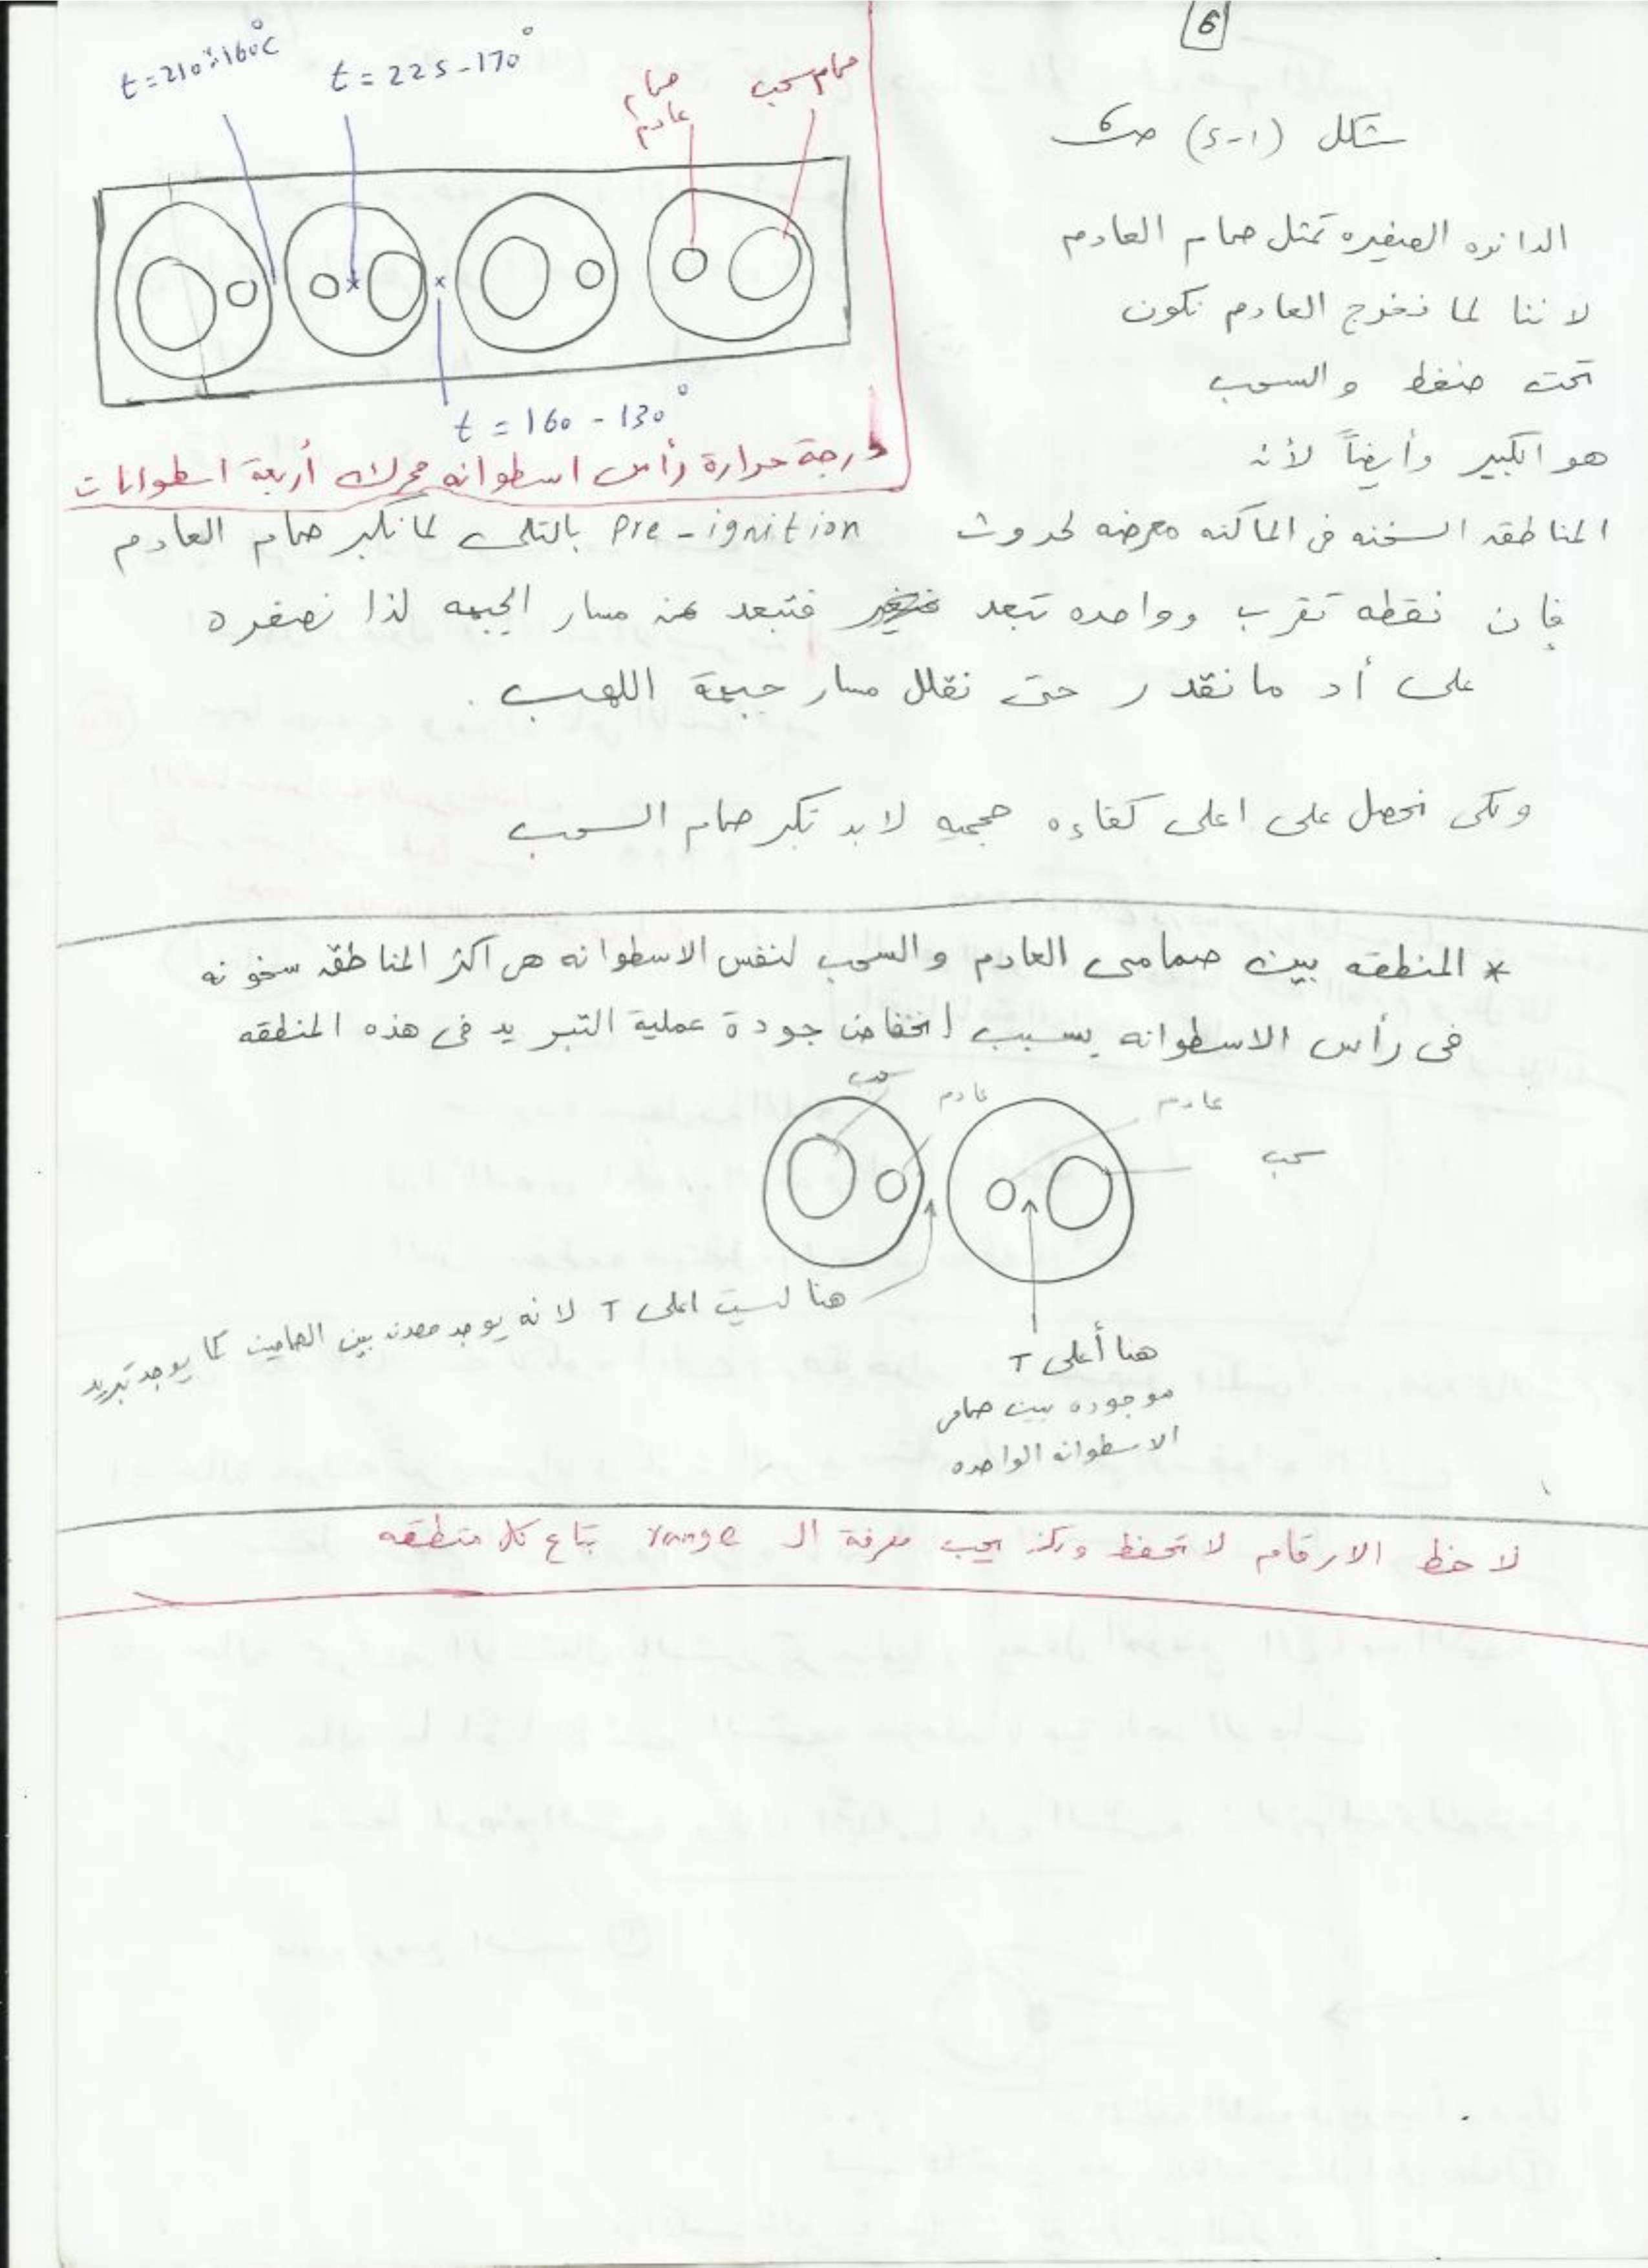 6
t = 210 ÷ 160°C
t = 225 - 170°
صمام عادم
صمام سحب
t = 160 - 130°
درجة حرارة رأس اسطوانه محرك أربعة اسطوانات
شكل (١-٢) ص٦
الدائره الصغيره تمثل صمام العادم
لاننا لما نخرج العادم نكون
تحت ضغط والسحب
هو الكبير وأيضاً لأنه
المناطقه السخنه فى الماكنه معرضه لحدوث pre-ignition بالتالى لما نكبر صمام العادم
فإن نقطه تقرب وواحده تبعد فتبعد عن مسار الجبهه لذا نصغره
على أد ما نقدر حتى نقلل مسار جبهة اللهب.
ولكى نحصل على اعلى كفاءه حجميه لابد نكبر صمام السحب
* المنطقه بين صمامى العادم والسحب لنفس الاسطوانه هى اكثر المناطقه سخونه
فى رأس الاسطوانه بسبب انخفاض جودة عملية التبريد فى هذه المنطقه
سحب
عادم
عادم
سحب
هنا ليست اعلى T لانه يوجد معدن بين الصمامين كما يوجد تبريد
هنا أعلى T
موجوده بين صمامى
الاسطوانه الواحده
لاحظ الارقام لا تحفظ ولكن يجب معرفة الـ range بتاع كل منطقه